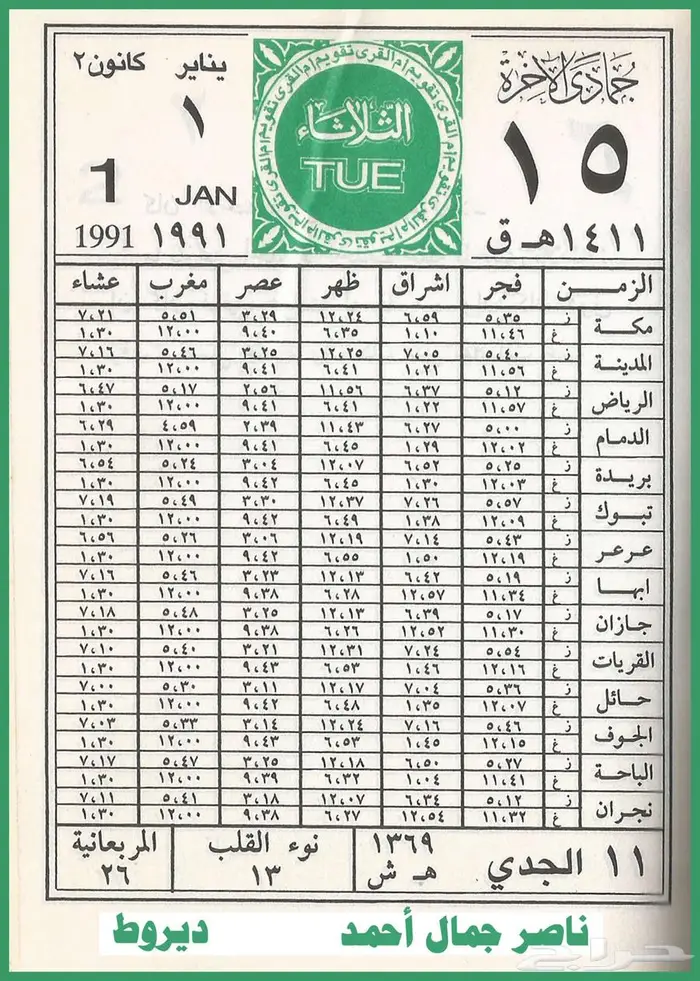 جمادى الآخرة
١٥
١٤١١ هـ ق
تقويم أم القرى تقويم أم القرى تقويم أم القرى تقويم أم القرى تقويم أم القرى
الثلاثاء
TUE
يناير كانون٢
١
1 JAN
1991 ١٩٩١
الزمن فجر اشراق ظهر عصر مغرب عشاء
مكة ز ٥،٣٥ ٦،٥٩ ١٢،٢٤ ٣،٢٩ ٥،٥١ ٧،٢١
غ ١١،٤٦ ١،١٠ ٦،٣٥ ٩،٤٠ ١٢،٠٠ ١،٣٠
المدينة ز ٥،٤٠ ٧،٠٥ ١٢،٢٥ ٣،٢٥ ٥،٤٦ ٧،١٦
غ ١١،٥٦ ١،٢١ ٦،٤١ ٩،٤١ ١٢،٠٠ ١،٣٠
الرياض ز ٥،١٢ ٦،٣٧ ١١،٥٦ ٢،٥٦ ٥،١٧ ٦،٤٧
غ ١١،٥٧ ١،٢٢ ٦،٤١ ٩،٤١ ١٢،٠٠ ١،٣٠
الدمام ز ٥،٠٠ ٦،٢٧ ١١،٤٣ ٢،٣٩ ٤،٥٩ ٦،٢٩
غ ١٢،٠٢ ١،٢٩ ٦،٤٥ ٩،٤١ ١٢،٠٠ ١،٣٠
بريدة ز ٥،٢٥ ٦،٥٢ ١٢،٠٧ ٣،٠٤ ٥،٢٤ ٦،٥٤
غ ١٢،٠٣ ١،٣٠ ٦،٤٥ ٩،٤٢ ١٢،٠٠ ١،٣٠
تبوك ز ٥،٥٧ ٧،٢٦ ١٢،٣٧ ٣،٣٠ ٥،٤٩ ٧،١٩
غ ١٢،٠٩ ١،٣٨ ٦،٤٩ ٩،٤٢ ١٢،٠٠ ١،٣٠
عرعر ز ٥،٤٣ ٧،١٤ ١٢،١٩ ٣،٠٦ ٥،٢٦ ٦،٥٦
غ ١٢،١٩ ١،٥٠ ٦،٥٥ ٩،٤٢ ١٢،٠٠ ١،٣٠
ابها ز ٥،١٩ ٦،٤٢ ١٢،١٣ ٣،٢٣ ٥،٤٦ ٧،١٦
غ ١١،٣٤ ١٢،٥٧ ٦،٢٨ ٩،٣٨ ١٢،٠٠ ١،٣٠
جازان ز ٥،١٧ ٦،٣٩ ١٢،١٣ ٣،٢٥ ٥،٤٨ ٧،١٨
غ ١١،٣٠ ١٢،٥٢ ٦،٢٦ ٩،٣٨ ١٢،٠٠ ١،٣٠
القريات ز ٥،٥٤ ٧،٢٤ ١٢،٣١ ٣،٢١ ٥،٤٠ ٧،١٠
غ ١٢،١٦ ١،٤٦ ٦،٥٣ ٩،٤٣ ١٢،٠٠ ١،٣٠
حائل ز ٥،٣٦ ٧،٠٤ ١٢،١٧ ٣،١١ ٥،٣٠ ٧،٠٠
غ ١٢،٠٧ ١،٣٥ ٦،٤٨ ٩،٤٢ ١٢،٠٠ ١،٣٠
الجوف ز ٥،٤٦ ٧،١٦ ١٢،٢٤ ٣،١٤ ٥،٣٣ ٧،٠٣
غ ١٢،١٥ ١،٤٥ ٦،٥٣ ٩،٤٣ ١٢،٠٠ ١،٣٠
الباحة ز ٥،٢٧ ٦،٥٠ ١٢،١٨ ٣،٢٥ ٥،٤٧ ٧،١٧
غ ١١،٤١ ١،٠٤ ٦،٣٢ ٩،٣٩ ١٢،٠٠ ١،٣٠
نجران ز ٥،١٢ ٦،٣٤ ١٢،٠٧ ٣،١٨ ٥،٤١ ٧،١١
غ ١١،٣٢ ١٢،٥٤ ٦،٢٧ ٩،٣٨ ١٢،٠٠ ١،٣٠
١١ الجدي
١٣٦٩
هـ ش
نوء القلب
١٣
المربعانية
٢٦
ناصر جمال أحمد ديروط
حراج